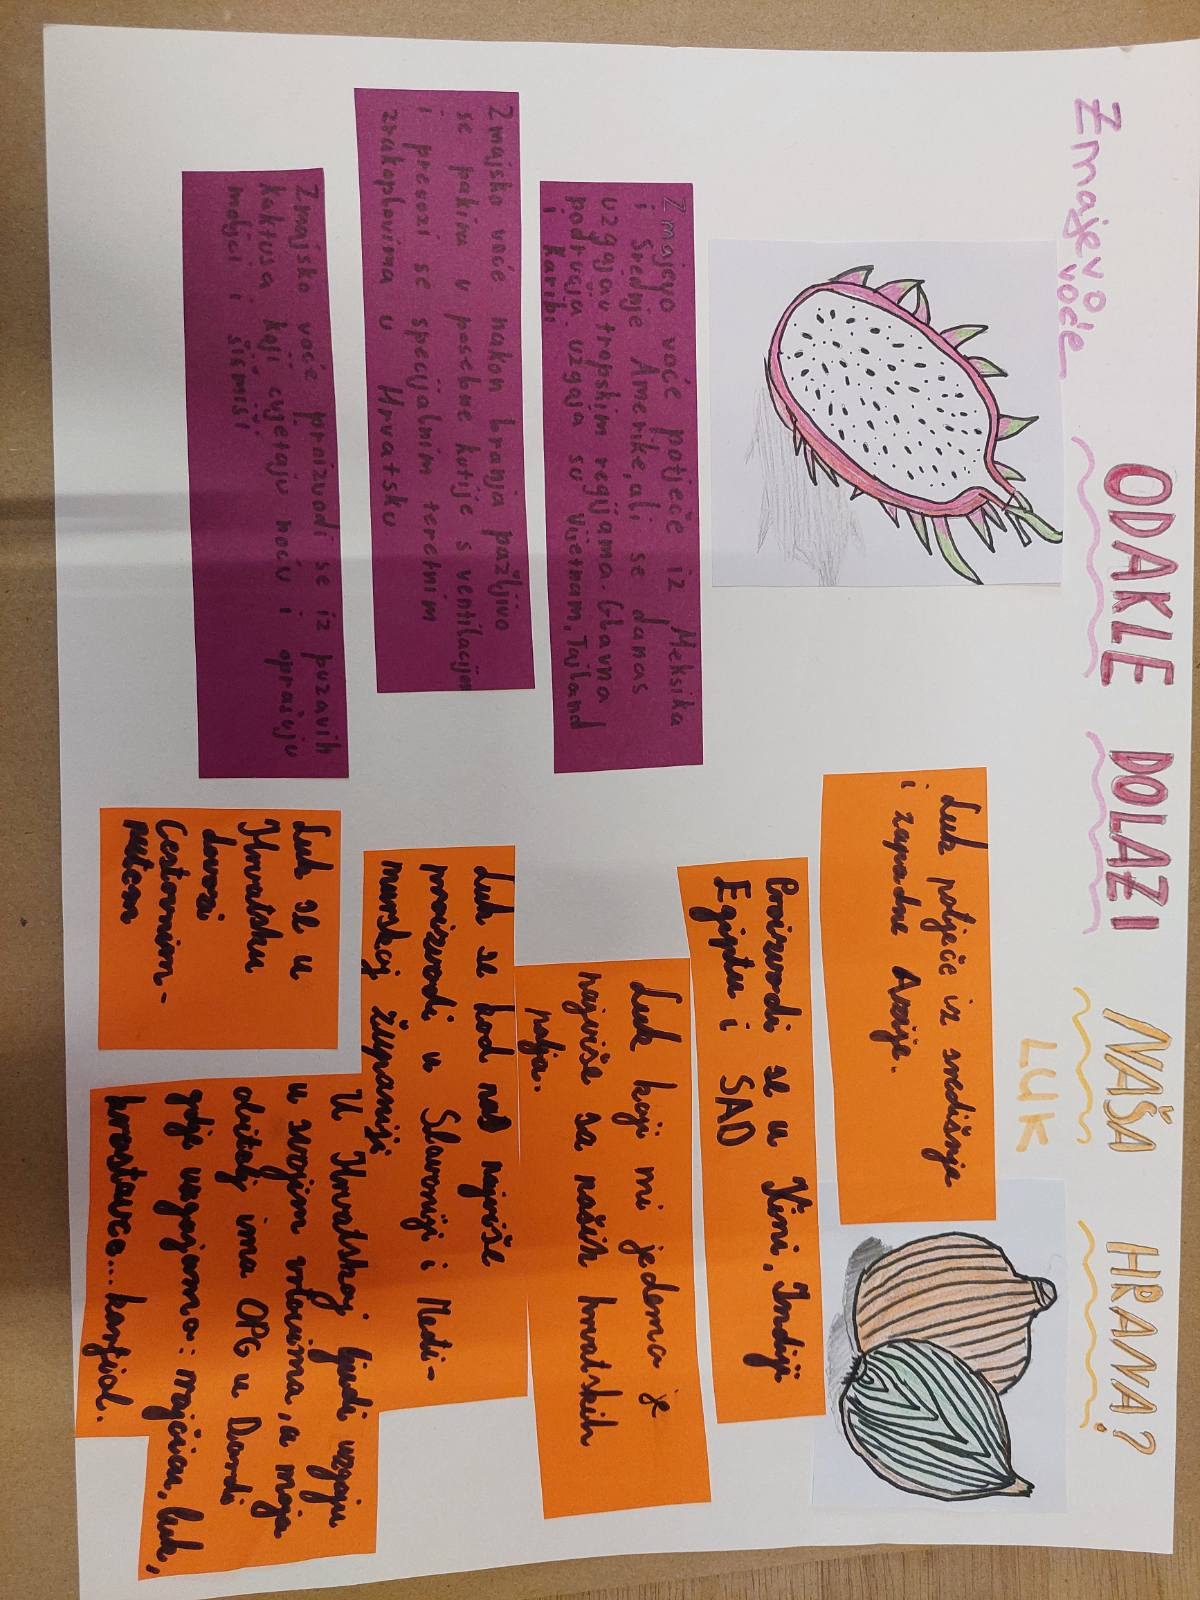 ODAKLE DOLAZI NAŠA HRANA?
Zmajevo
voće
Zmajevo voće potječe iz Meksika
i Srednje Amerike, ali se danas
uzgajau tropskim regijama. Glavna
područja uzgaja su Vijetnam, Tajland
i Karibi
Zmajsko voće nakon branja pažljivo
se pakira u posebne kutije s ventilacijom
i prevozi se specijalnim teretnim
zrakoplovima u Hrvatsku
Zmajsko voće proizvodi se iz puzavih
kaktusa koji cvjetaju noću i oprašuju
moljci i šišmiši
LUK
Luk potječe iz središnje
i zapadne Azije.
Proizvodi se u Kini, Indiji
Egiptu i SAD
Luk koji mi jedemo je
najviše sa naših hrvatskih
polja.
Luk se kod nas najviše
proizvodi u Slavoniji i Međi-
murskoj županiji
Luk se u
Hrvatsku
dovozi
Cestovnim-
putem
U Hrvatskoj ljudi uzgaju
u svojim vrtovima, a moja
obitelj ima OPG u Dardi
gdje uzgajamo: rajčicu, luk,
krastavce... karfiol.